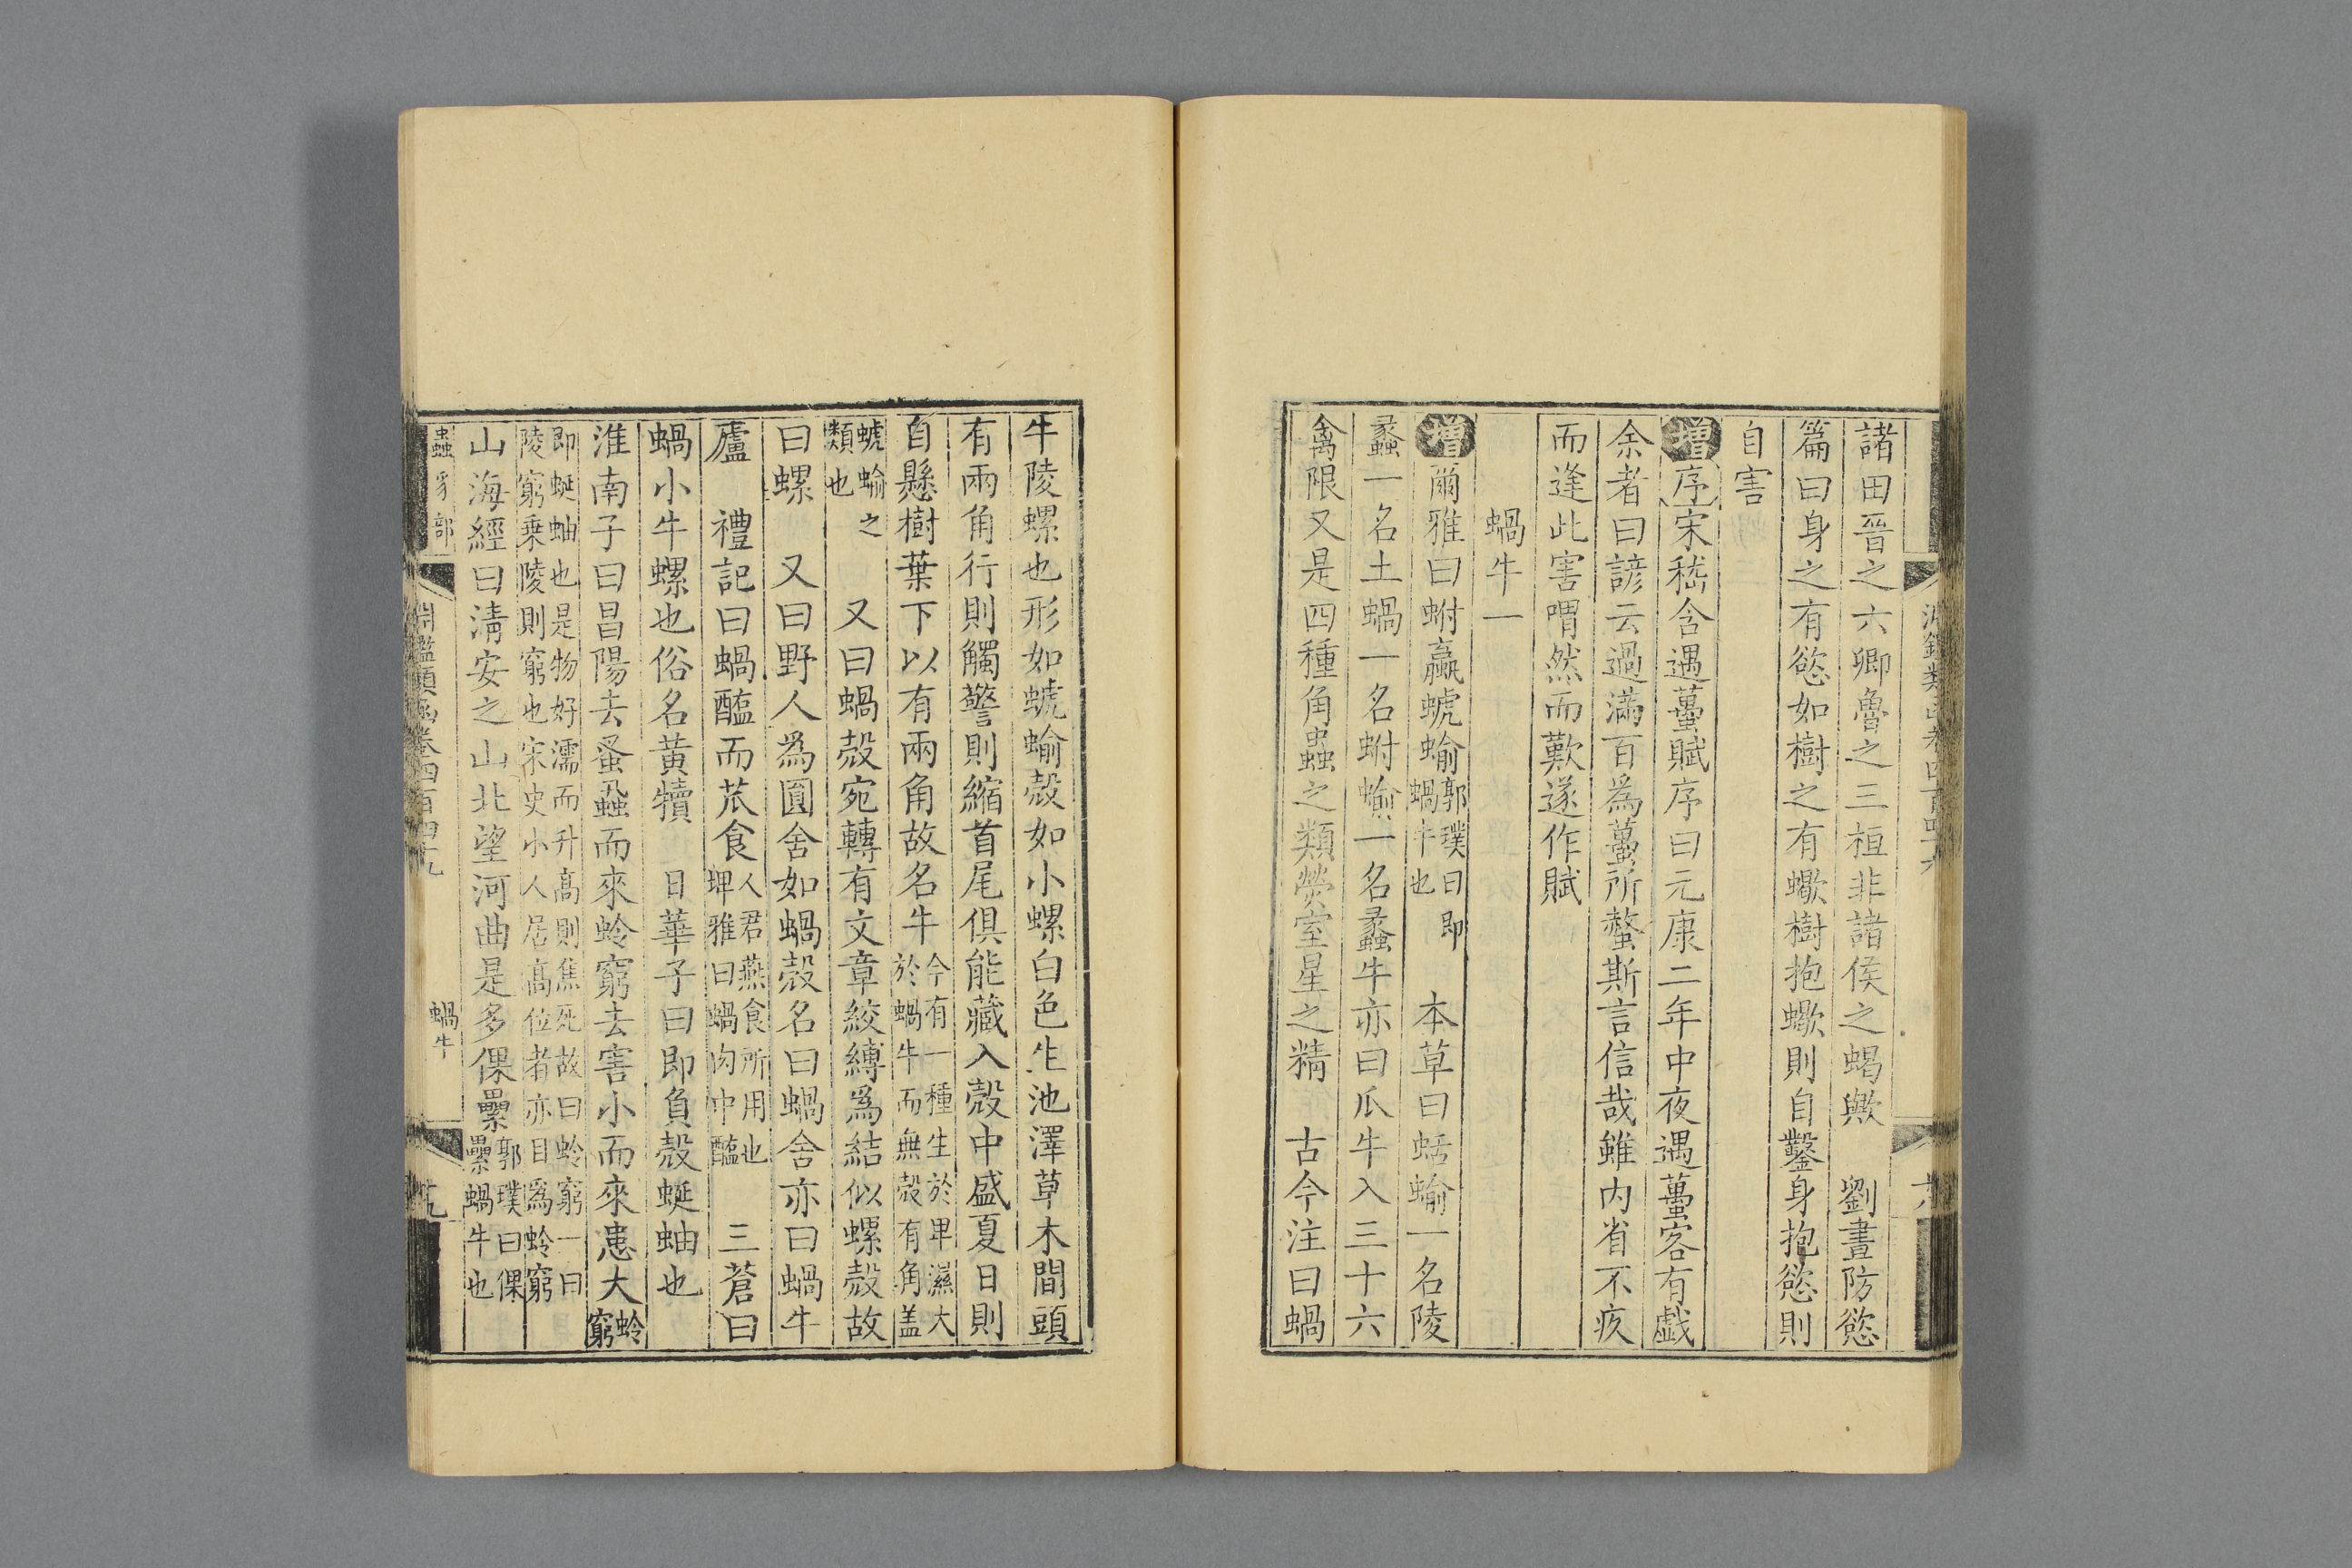 諸田晉之六卿魯之三桓非諸侯之蝎歟　劉晝防慾
篇曰身之有慾如樹之有蠍樹抱蠍則自鑿身抱慾則
自害
增序宋嵇含遇蠆賦序曰元康二年中夜遇蠆客有戲
余者曰諺云過滿百爲蠆所螫斯言信哉雖內省不疚
而逢此害喟然而歎遂作賦
蝸牛一
增爾雅曰蚹蠃螔蝓郭璞曰即蝸牛也　本草曰蛞蝓一名陵
蠡一名土蝸一名蚹蝓一名蠡牛亦曰瓜牛入三十六
禽限又是四種角蟲之類熒室星之精　古今注曰蝸
牛陵螺也形如螔蝓殼如小螺白色生池澤草木間頭
有兩角行則觸警則縮首尾俱能藏入殼中盛夏日則
自懸樹葉下以有兩角故名牛今有一種生於卑濕大於蝸牛而無殼有角盖
螔蝓之類也　又曰蝸殼宛轉有文章絞縛爲結似螺殼故
曰螺　又曰野人爲圓舍如蝸殼名曰蝸舍亦曰蝸牛
廬　禮記曰蝸醢而苽食人君燕食所用也埤雅曰蝸肉中醢　三蒼曰
蝸小牛螺也俗名黃犢　日華子曰即負殼蜒蚰也
淮南子曰昌陽去蚤蝨而來蛉窮去害小而來患大蛉窮
即蜒蚰也是物好濡而升高則焦死故曰蛉窮一曰陵窮乗陵則窮也宋史小人居高位者亦目爲蛉窮
山海經曰淸安之山北望河曲是多倮纍郭璞曰倮纍蝸牛也
蟲豸部
淵鑑類函卷四百四十九
蝸牛